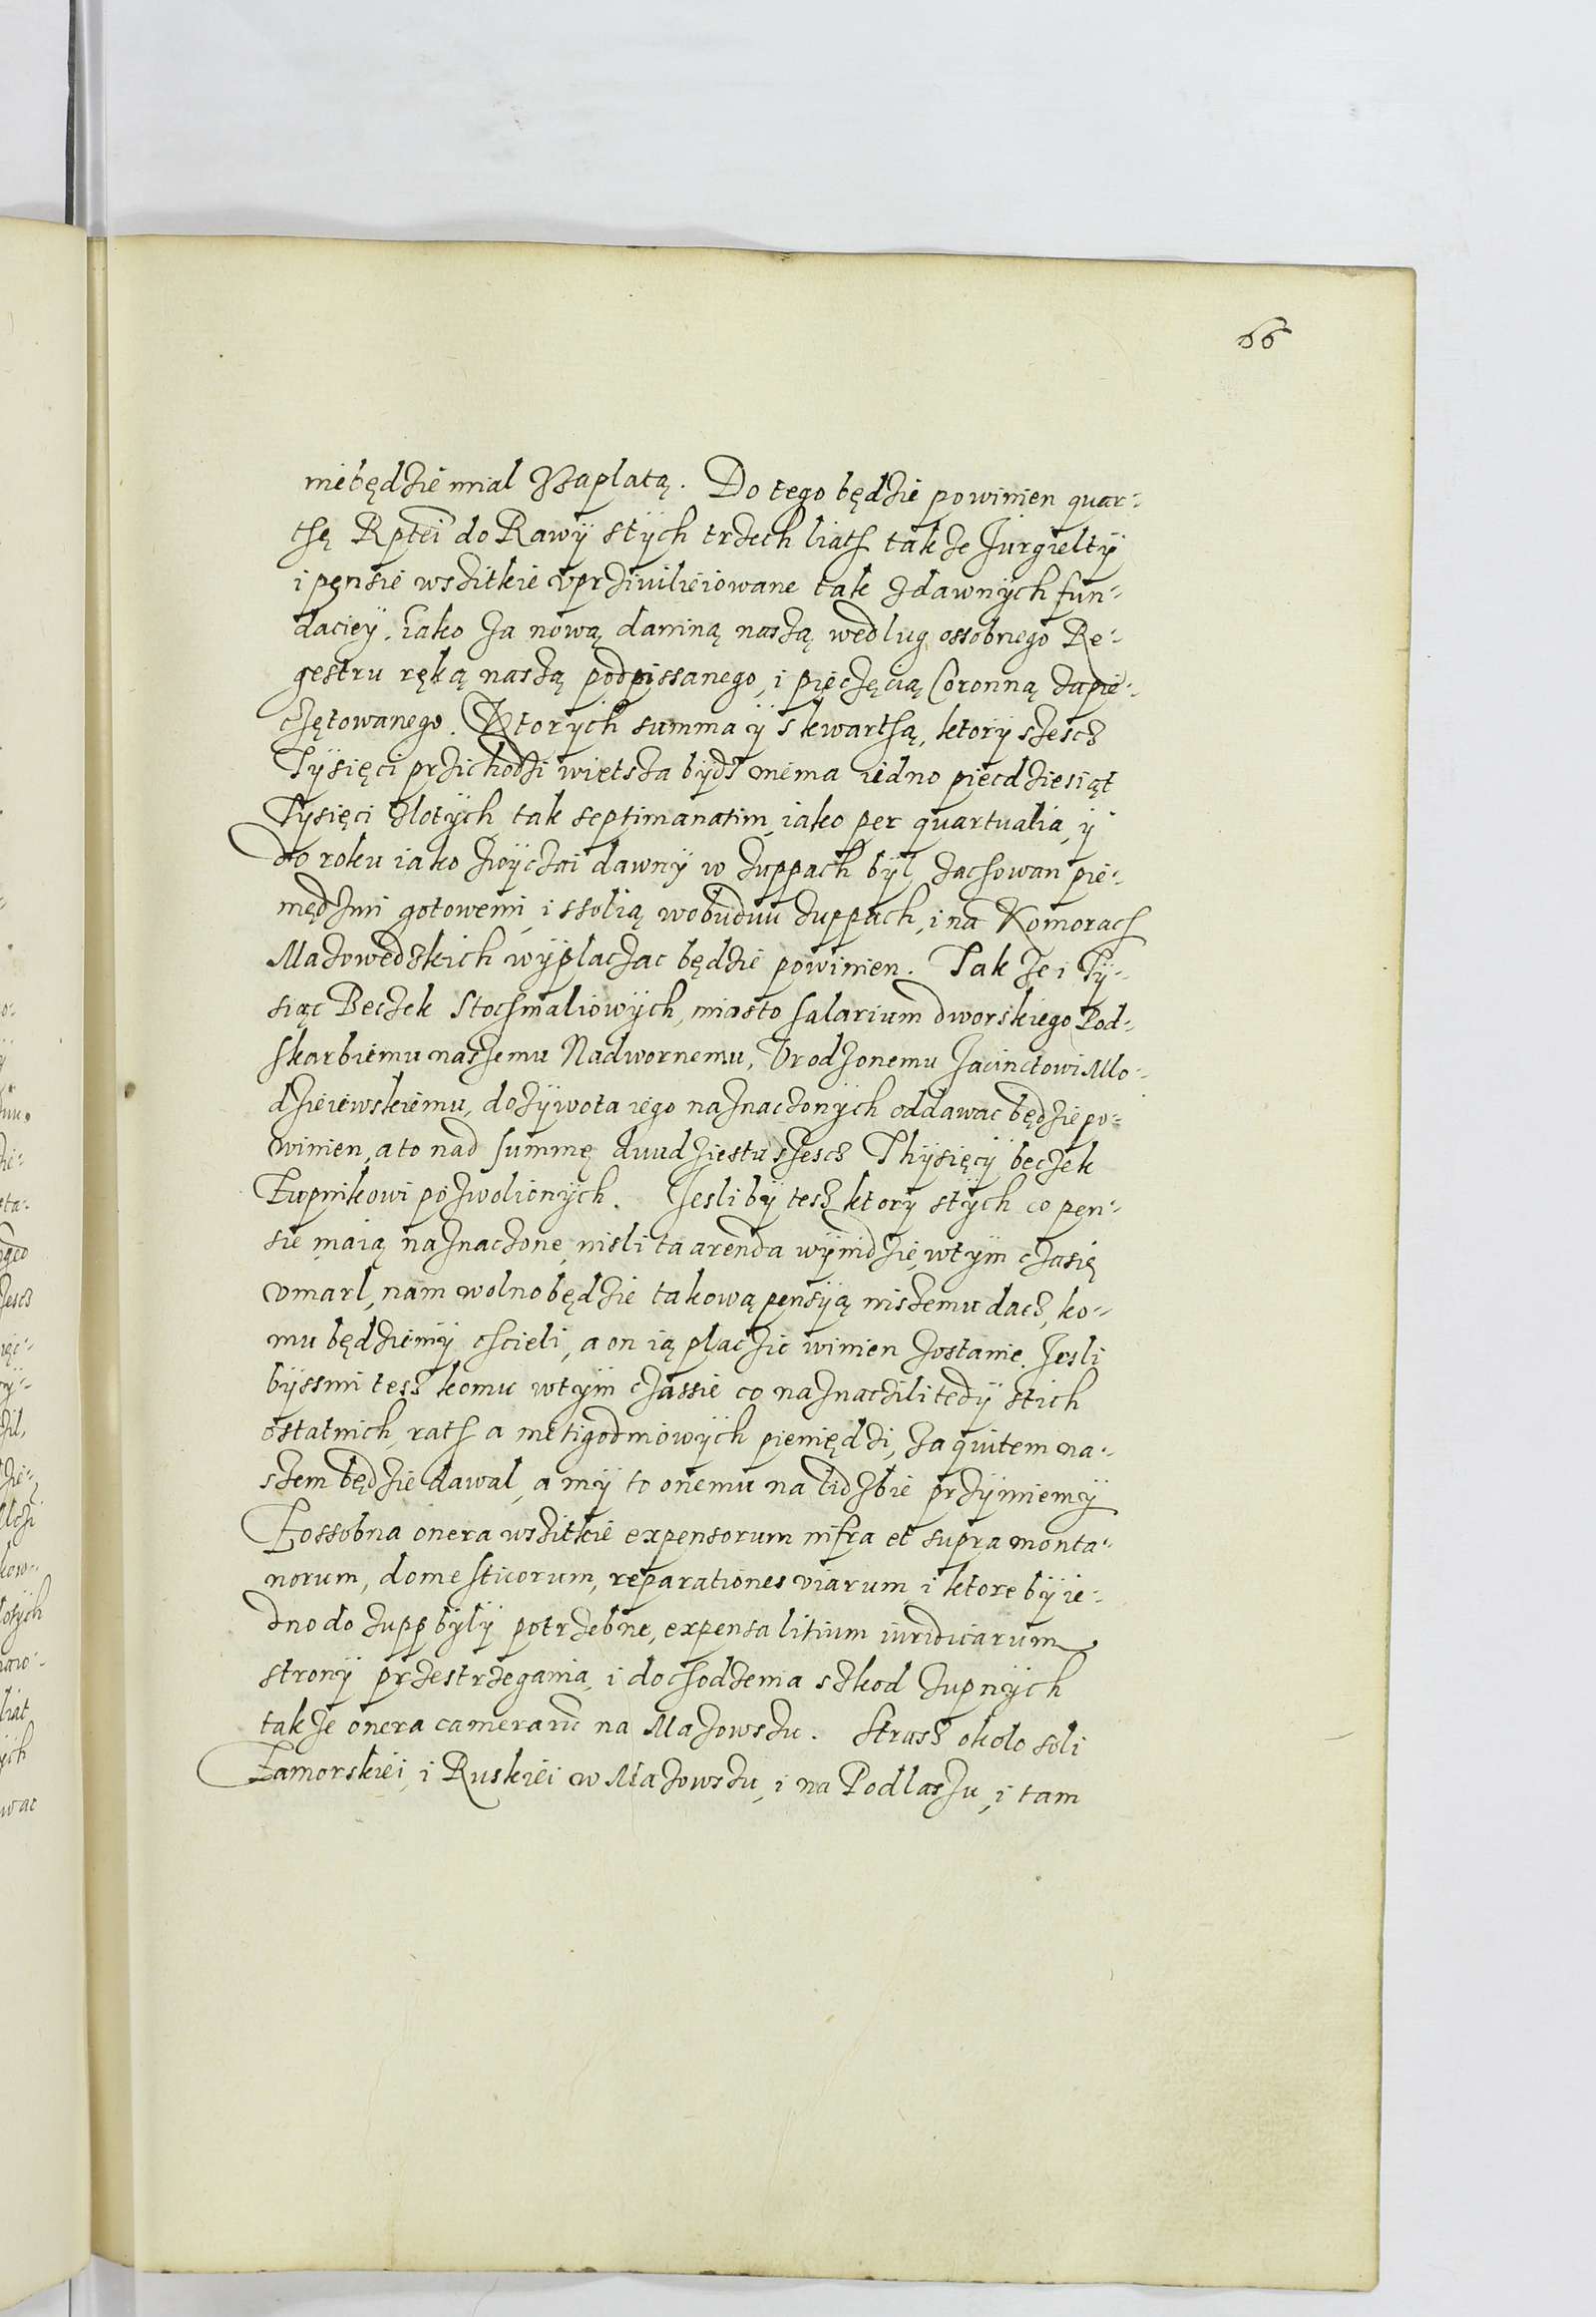 66
niebędzie mial Zaplatą. Do tego będzie powinien quar-
tsę Rptei do Rawÿ stÿch trzech liath takze Jurgieltÿ
i pensie wszitkie vprziwilieiowane tak zdawnÿch fun-
daciey, iako za nową daniną naszą wedlug ossobnego Re-
gestru ręką naszą podpissanego, i pięczęcią Coronną zapie-
czętowanego. Ktorÿch summa ÿ s kwartsą, ktorÿ szescz
Tÿsięci przichodzi wietsza bÿdz niema iedno piecdziesiąt
Tÿsięci zlotÿch tak septimanatim, iako per quartualia, ÿ
do roku iako zwÿczai dawnÿ w zuppach bÿl, zachowan pie-
niędzmi gotowemi, i ssolią wobudwu zuppach, i na Komorach
Mazowedzkich wÿplaczac będzie powinien. Takze i Tÿ-
siąc Beczek Stochmaliowÿch, miasto salarium dworskiego Pod-
skarbiemu naszemu Nadwornemu, Vrodzonemu Jacinctowi Mlo-
dzieiewskiemu, dozÿwota iego naznaczonÿch oddawac będzie po-
winien, a to nad summę dwudziestu szescz Thÿsięcÿ beczek
Zupnikowi pozwolionÿch. Jesli bÿ tesz ktorÿ stÿch co pen-
sie maią naznaczone, nisli ta arenda wÿnidzie, wtÿm czasię
vmarl, nam wolno będzie takową pensÿą niszemu dacz, ko-
mu będziemÿ chcieli, a on ią placzic winien zostanie. Jesli
bÿssmi tesz komu wtÿm czassie co naznaczili tedÿ stich
ostatnich, rath a nietigodniowÿch pieniędzi, za quitem na-
szem będzie dawal, a mÿ to onemu na lidzbie przÿimiemÿ
Zossobna onera wszitkie expensorum infra et supra monta-
norum, domesticorum, reparationes viarum, i ktore bÿ ie-
dno do zupp bÿlÿ potrzebne, expensa litium iuridicarum
stronÿ przestrzegania, i dochodzenia szkod zupnÿch
takze onera camerarū na Mazowszu. Strasz okolo soli
Zamorskiei, i Ruskiei w Mazowszu, i na Podlaszu, i tam